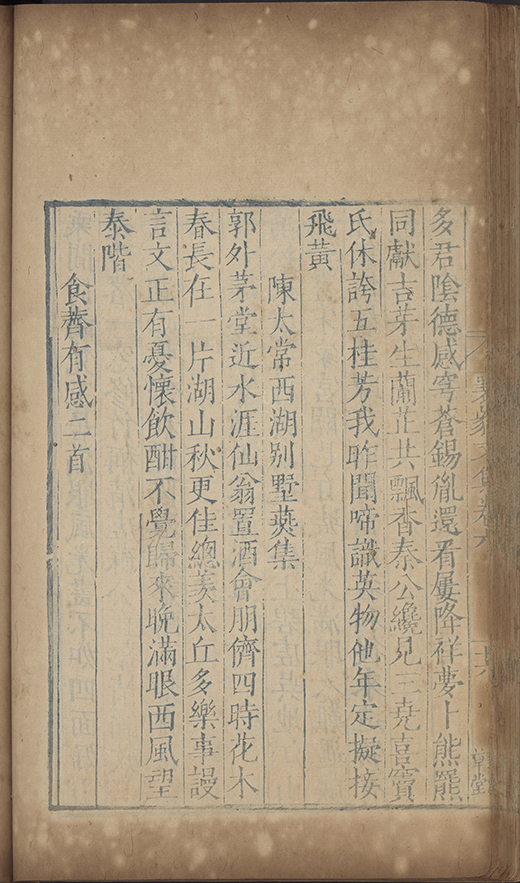 多君陰德感穹蒼錫胤還看屢降祥夢卜熊羆
同獻吉芽生蘭茁共飄香秦公纔見三堯喜竇
氏休誇五桂芳我昨聞啼識英物他年定擬接
飛黃
陳太常西湖别墅燕集
郭外茅堂近水涯仙翁置酒會朋儕四時花木
春長在一片湖山秋更佳總羡太丘多樂事謾
言文正有憂懷飲酣不覺歸來晚滿眼西風望
泰階
食薺有感二首